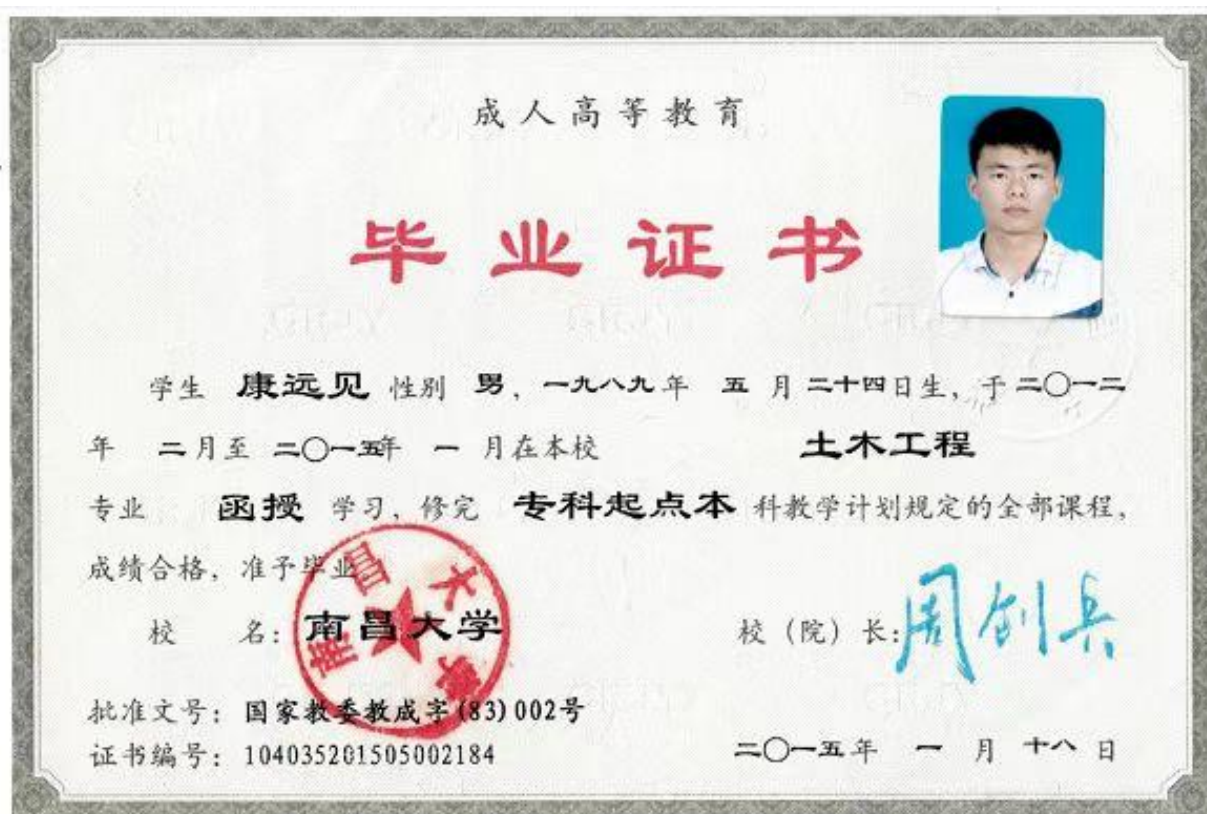 成人高等教育
毕业证书
学生 康远见 性别 男，一九八九年 五 月 二十四日生，于二〇一二
年 二月至 二〇一五年 一 月在本校 土木工程
专业 函授 学习，修完 专科起点本 科教学计划规定的全部课程，
成绩合格，准予毕业
校 名：南昌大学
南昌大学
校（院）长：周创兵
批准文号：国家教委教成字(83)002号
证书编号：104035201505002184
二〇一五年 一 月 十八 日